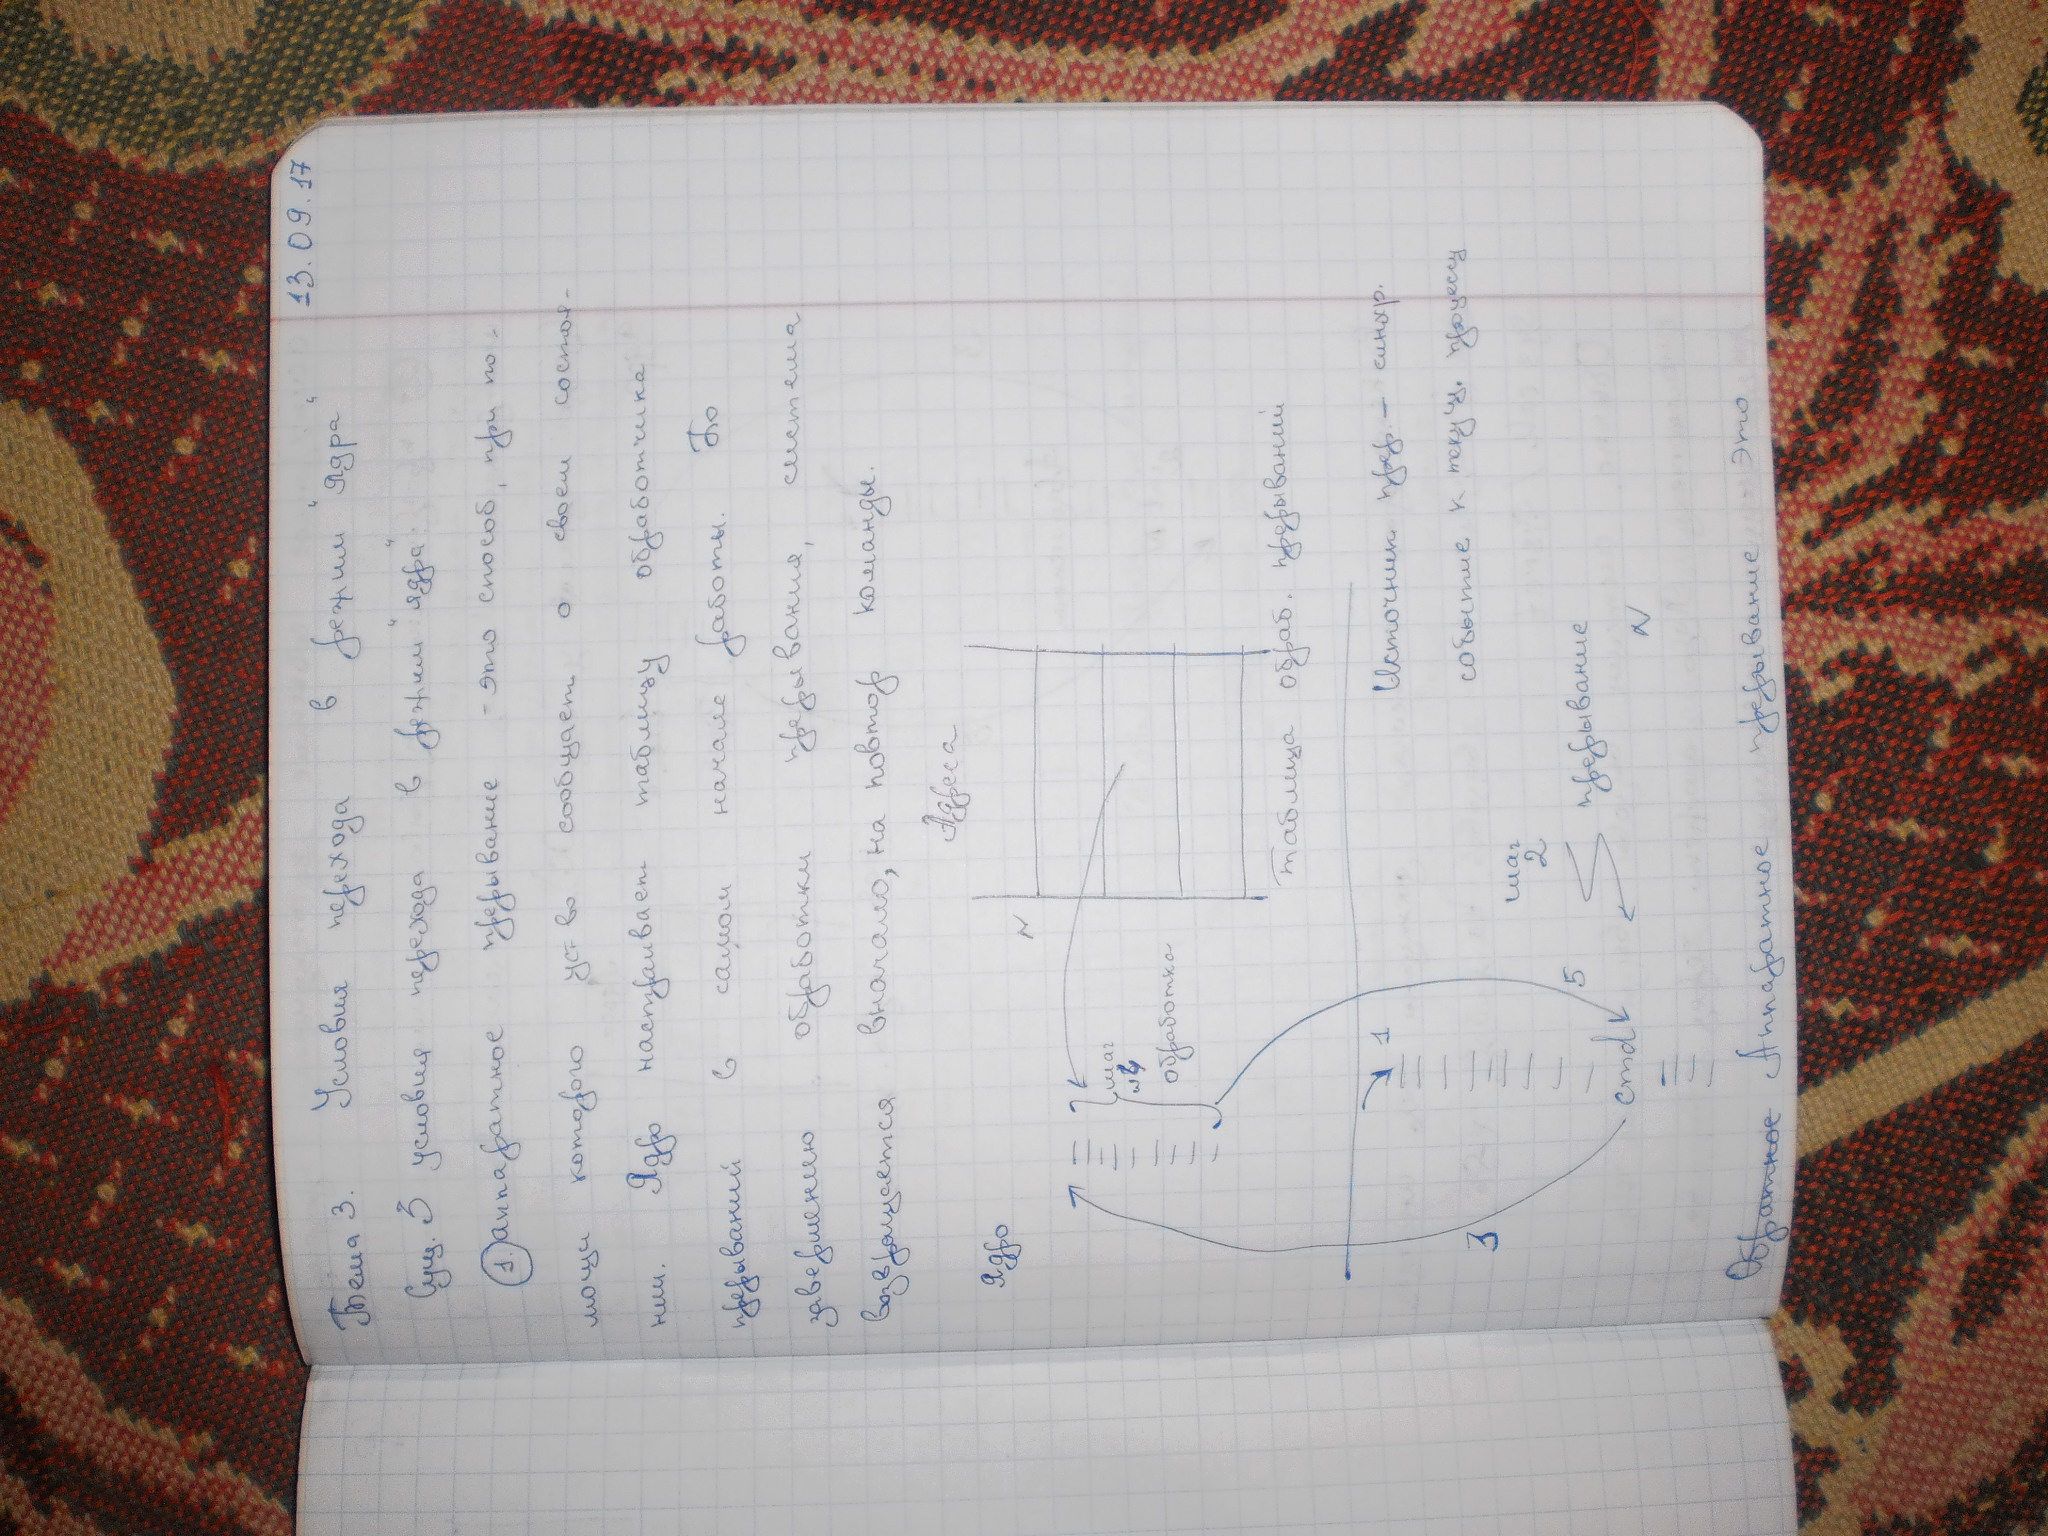 13.09.17
Тема 3. Условия перехода в режим "Ядра"
Сущ. 3 условия перехода в режим "ядра":
1. аппаратное прерывание - это способ, при по-
мощи которого уст-во сообщает о своем состоя-
нии. Ядро настраивает таблицу обработчика
прерываний в самом начале работы. По
завершению обработки прерывания, система
возвращается вначало, на повтор команды.
Адреса
Ядро
N
шаг
4
обработка
Таблица обраб. прерываний
1
Источник прер. - синхр.
событие к текущ. процессу
шаг
2
3
5
прерывание
cmd
N
Обратное Аппаратное прерывание это